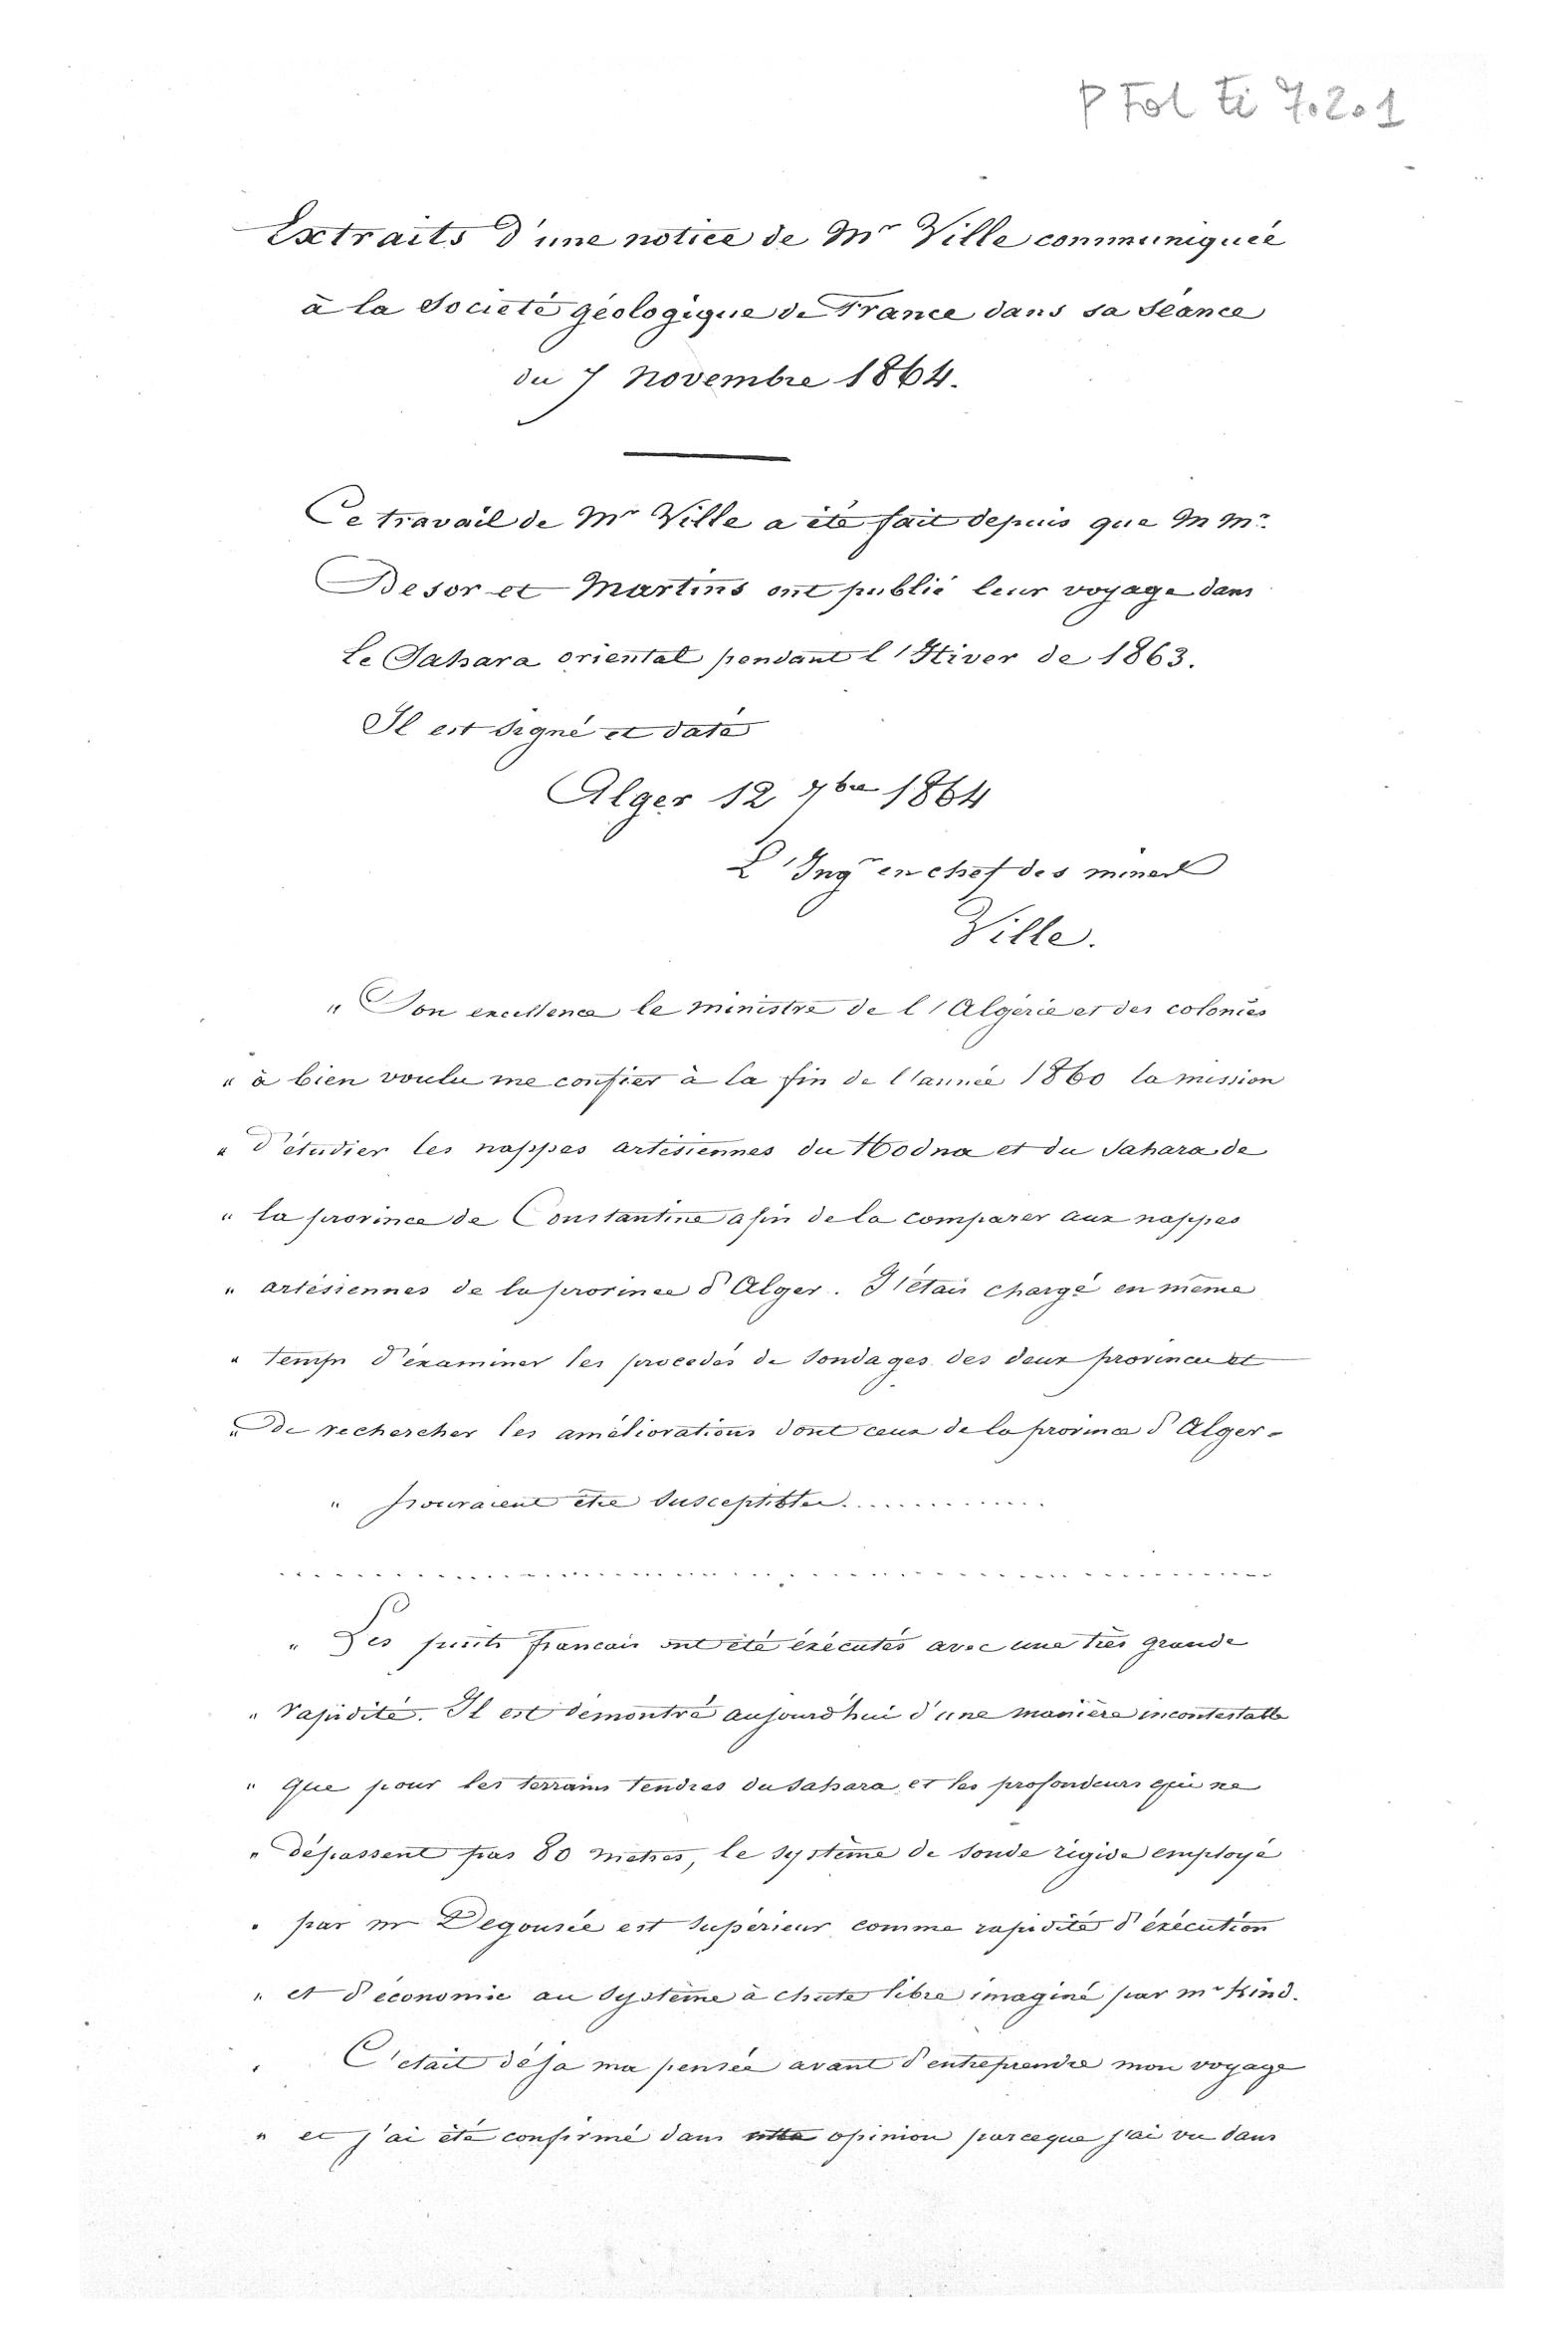 P Fol Ei 7.2.1
Extraits d'une notice de Mr Ville communiquée
à la Societé géologique de France dans sa Séance
du 7 Novembre 1864.
Ce travail de Mr Ville a été fait depuis que M Mrs
Desor et Martins ont publié leur voyage dans
le Sahara oriental pendant l'Hiver de 1863.
Il est signé et daté
Alger 12 7bre 1864
L'Ingr en chef des mines
Ville.
" Son excellence le ministre de l'Algérie et des colonies
" à bien voulu me confier à la fin de l'année 1860 la mission
" d'étudier les nappes artésiennes du Hodna et du Sahara de
" la province de Constantine afin de la comparer aux nappes
" artésiennes de la province d'Alger. J'étais chargé en même
" temps d'éxaminer les procedés de Sondages des deux provinces et
" de rechercher les améliorations dont ceux de la province d'Alger-
" pouraient être susceptibles..............
..............................................
" Les puits francais ont été éxécutés avec une très grande
" rapidité. Il est démontré aujourd'hui d'une manière incontestable
" que pour les terrains tendres du Sahara et les profondeurs qui ne
" dépassent pas 80 metres, le système de sonde rigide employé
" par mr Degousée est supérieur comme rapidité d'éxécution
" et d'économie au système à chute libre imaginé par mr Kind.
" C'était déja ma pensée avant d'entreprendre mon voyage
" et j'ai été confirmé dans cette opinion parceque j'ai vu dans